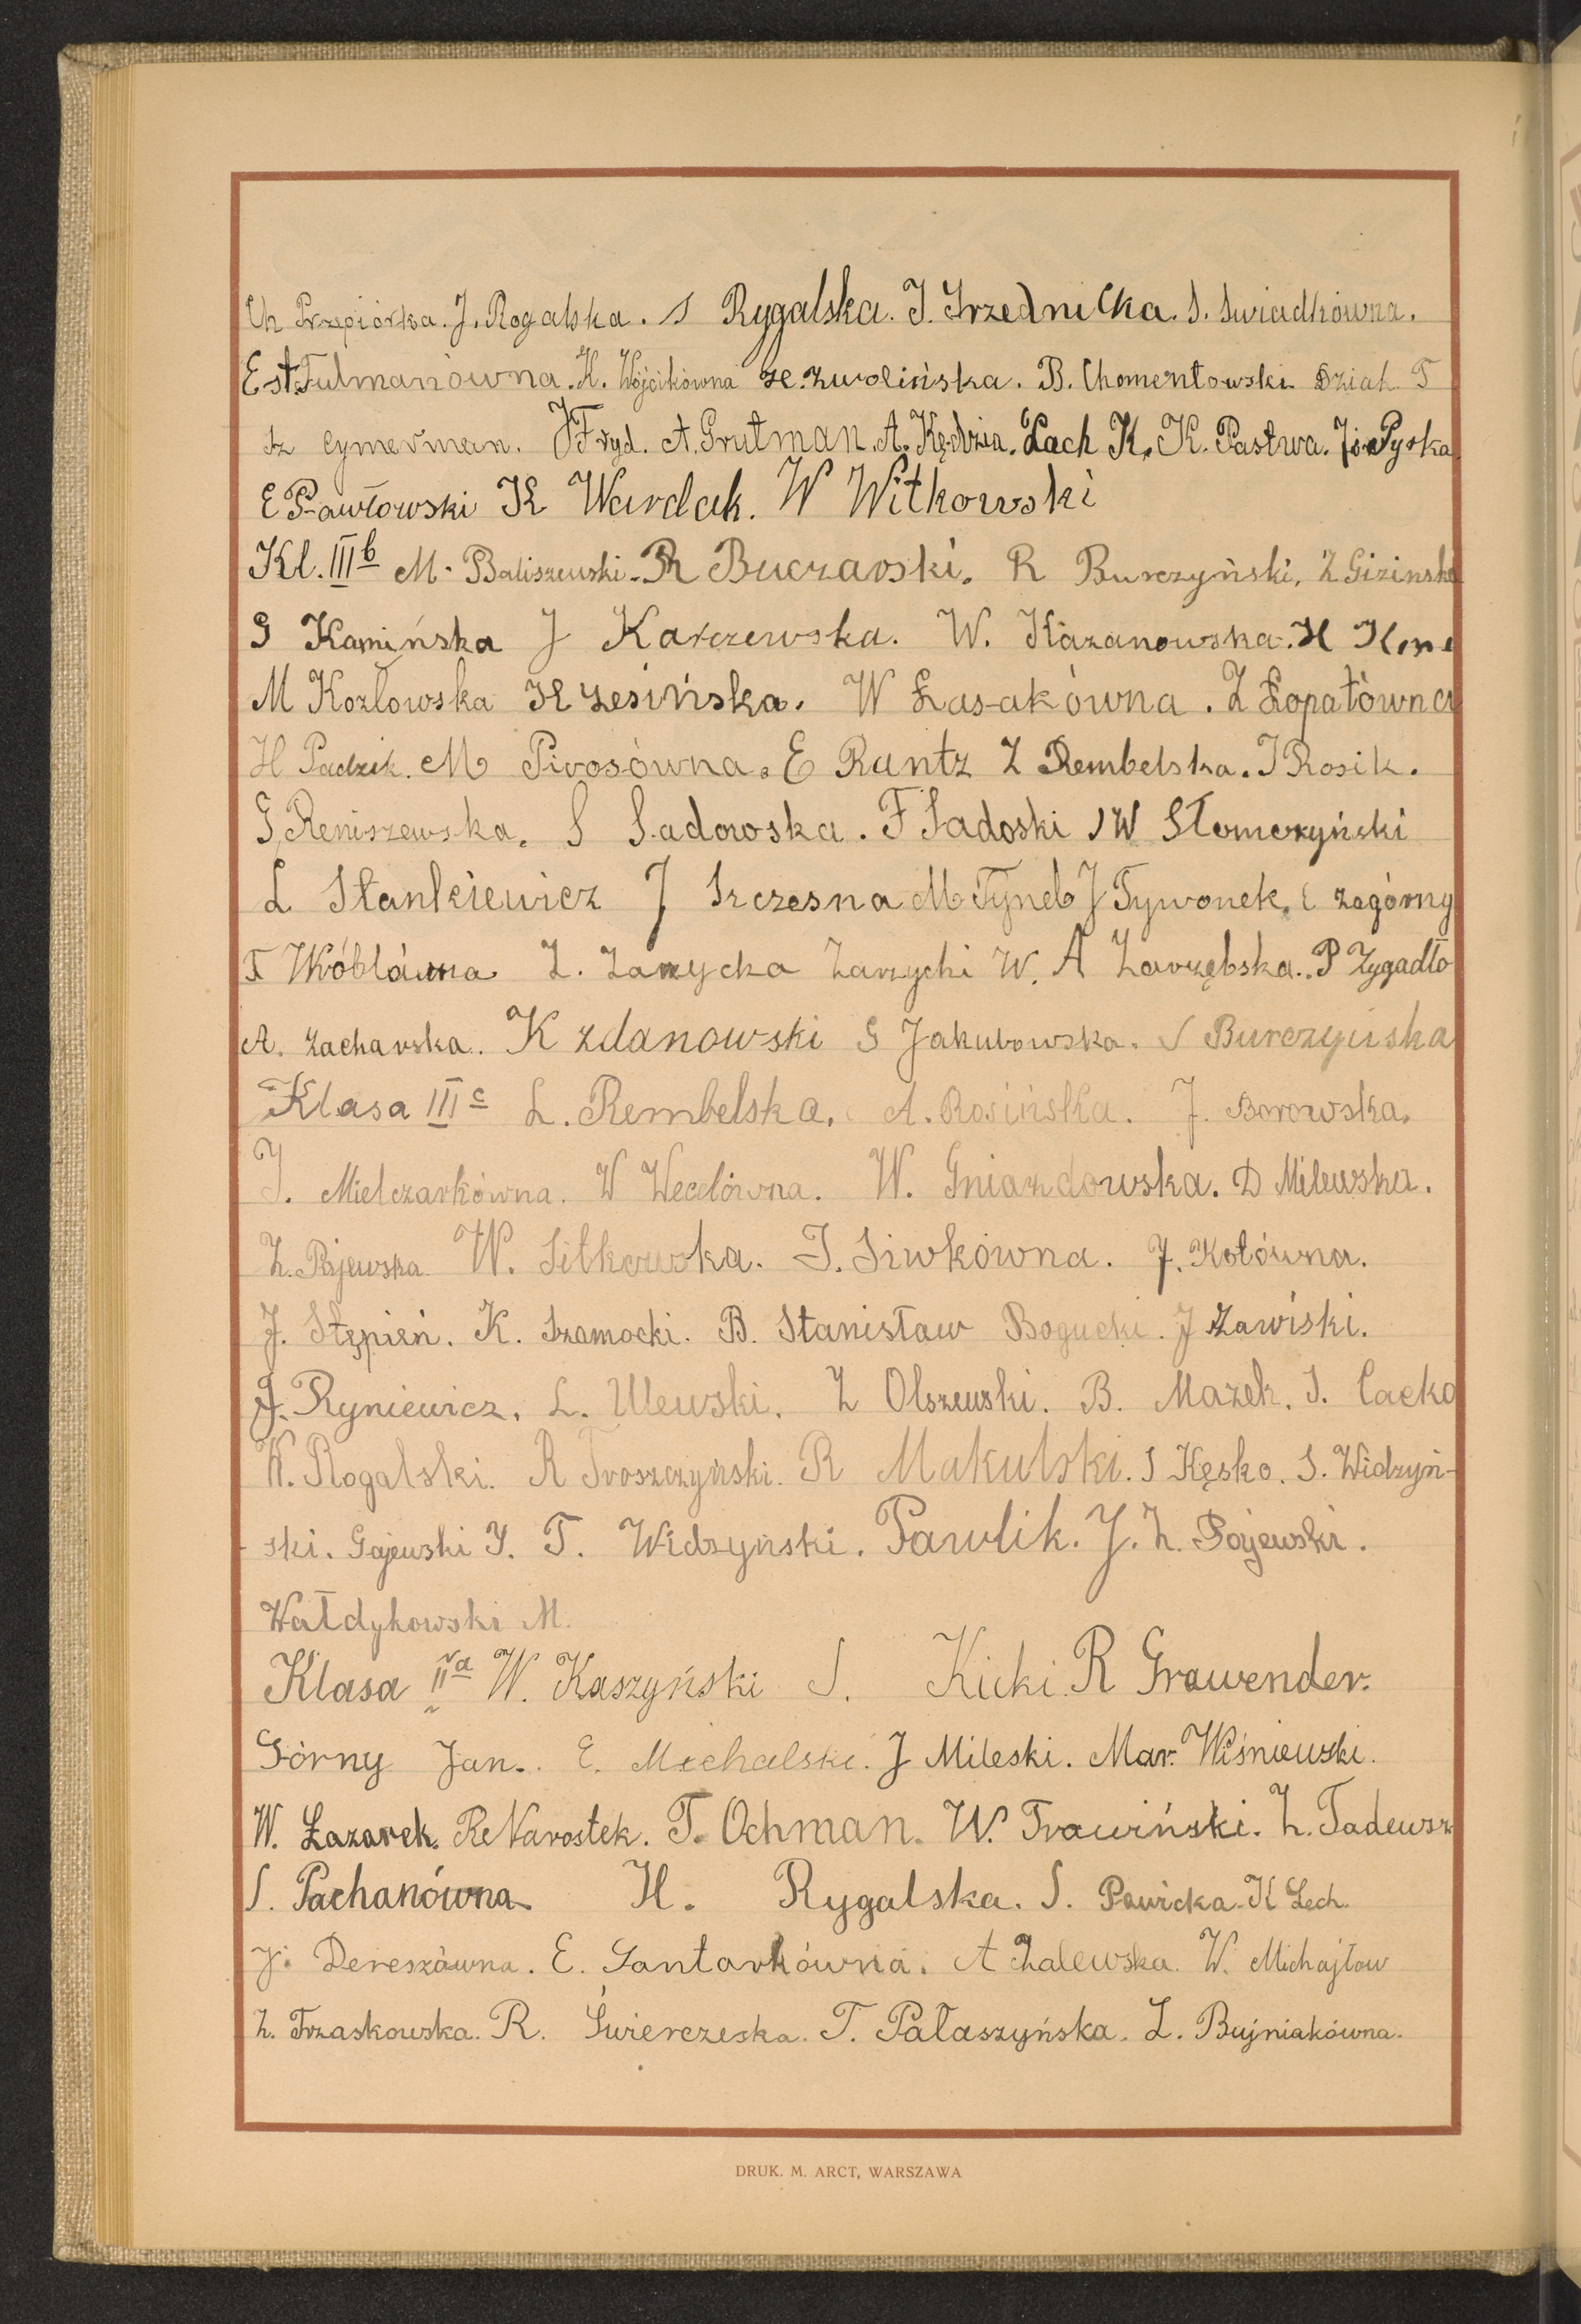 Ch Przepiórka. J. Rogalska. S Rygalska. J. Srzednicka. S. Swiadkówna.
Est. Fulmanówna. K. Wójcikówna He. Zwolińska. B. Chomentowski Dziak T
Sz cymerman. J Fryd. A. Grutman. A. Kędzia. Lach K. K. Pastwa. J. Pyrka
E Pawłowski K Wardak. W Witkowski
Kl. III b M. Baliszewski. R Buczarski. R Burczyński, Z Giziński
G Kamińska J Karczewska. W. Kazanowska. H
M Kozłowska H Lesińska. W Łasakówna. Z Łopatówna
H Padzik. M Pirosówna. E Rantz Z Rembelska. J Rosik.
G Reniszewska. S Sadowska. F Sadoski J W Słomczyński
L Stankiewicz J Szczesna M Tynel J Tywonek. E Zagórny
T Wróblówna Z. Zarzycka Zarzycki W. A Zarzębska. P Zygadło
A. Zacharska. K Zdanowski G Jakubowska. S Burczyńska
Klasa III c L. Rembelska. A. Rosińska. J. Borowska.
J. Mielczarkówna. W Wecelówna. W. Gniazdowska. D Milewska.
Z. Pajewska W. Sitkowska. J. Siwkówna. J. Kotówna.
J. Stępień. K. Szamocki. B. Stanisław Bogucki. J Zawiski.
J. Ryniewicz. L. Ulewski. Z Olszewski. B. Mazek. J. Cacko
K. Rogalski. R Troszczyński. R Makulski. S Kęsko. S. Widzyń-
-ski. Gajewski J. T. Widzyński. Pawlik. J. Z. Pajewski.
Wałdykowski M.
Klasa IV a W. Kaszyński S. Kicki. R Grawender.
Górny Jan. E. Michalski. J Mileski. Mar. Wiśniewski.
W. Łazarek. Re Narostek. T. Ochman. W. Trawiński. Z. Tadeusz
S. Pachanówna H. Rygalska. S. Pawicka. K Lech.
J. Dereszówna. E. Santarkówna. A Zalewska. W. Michajłow
Z. Trzaskowska. R. Świerczeska. T. Pałaszyńska. Z. Bujniakówna.
DRUK. M. ARCT, WARSZAWA